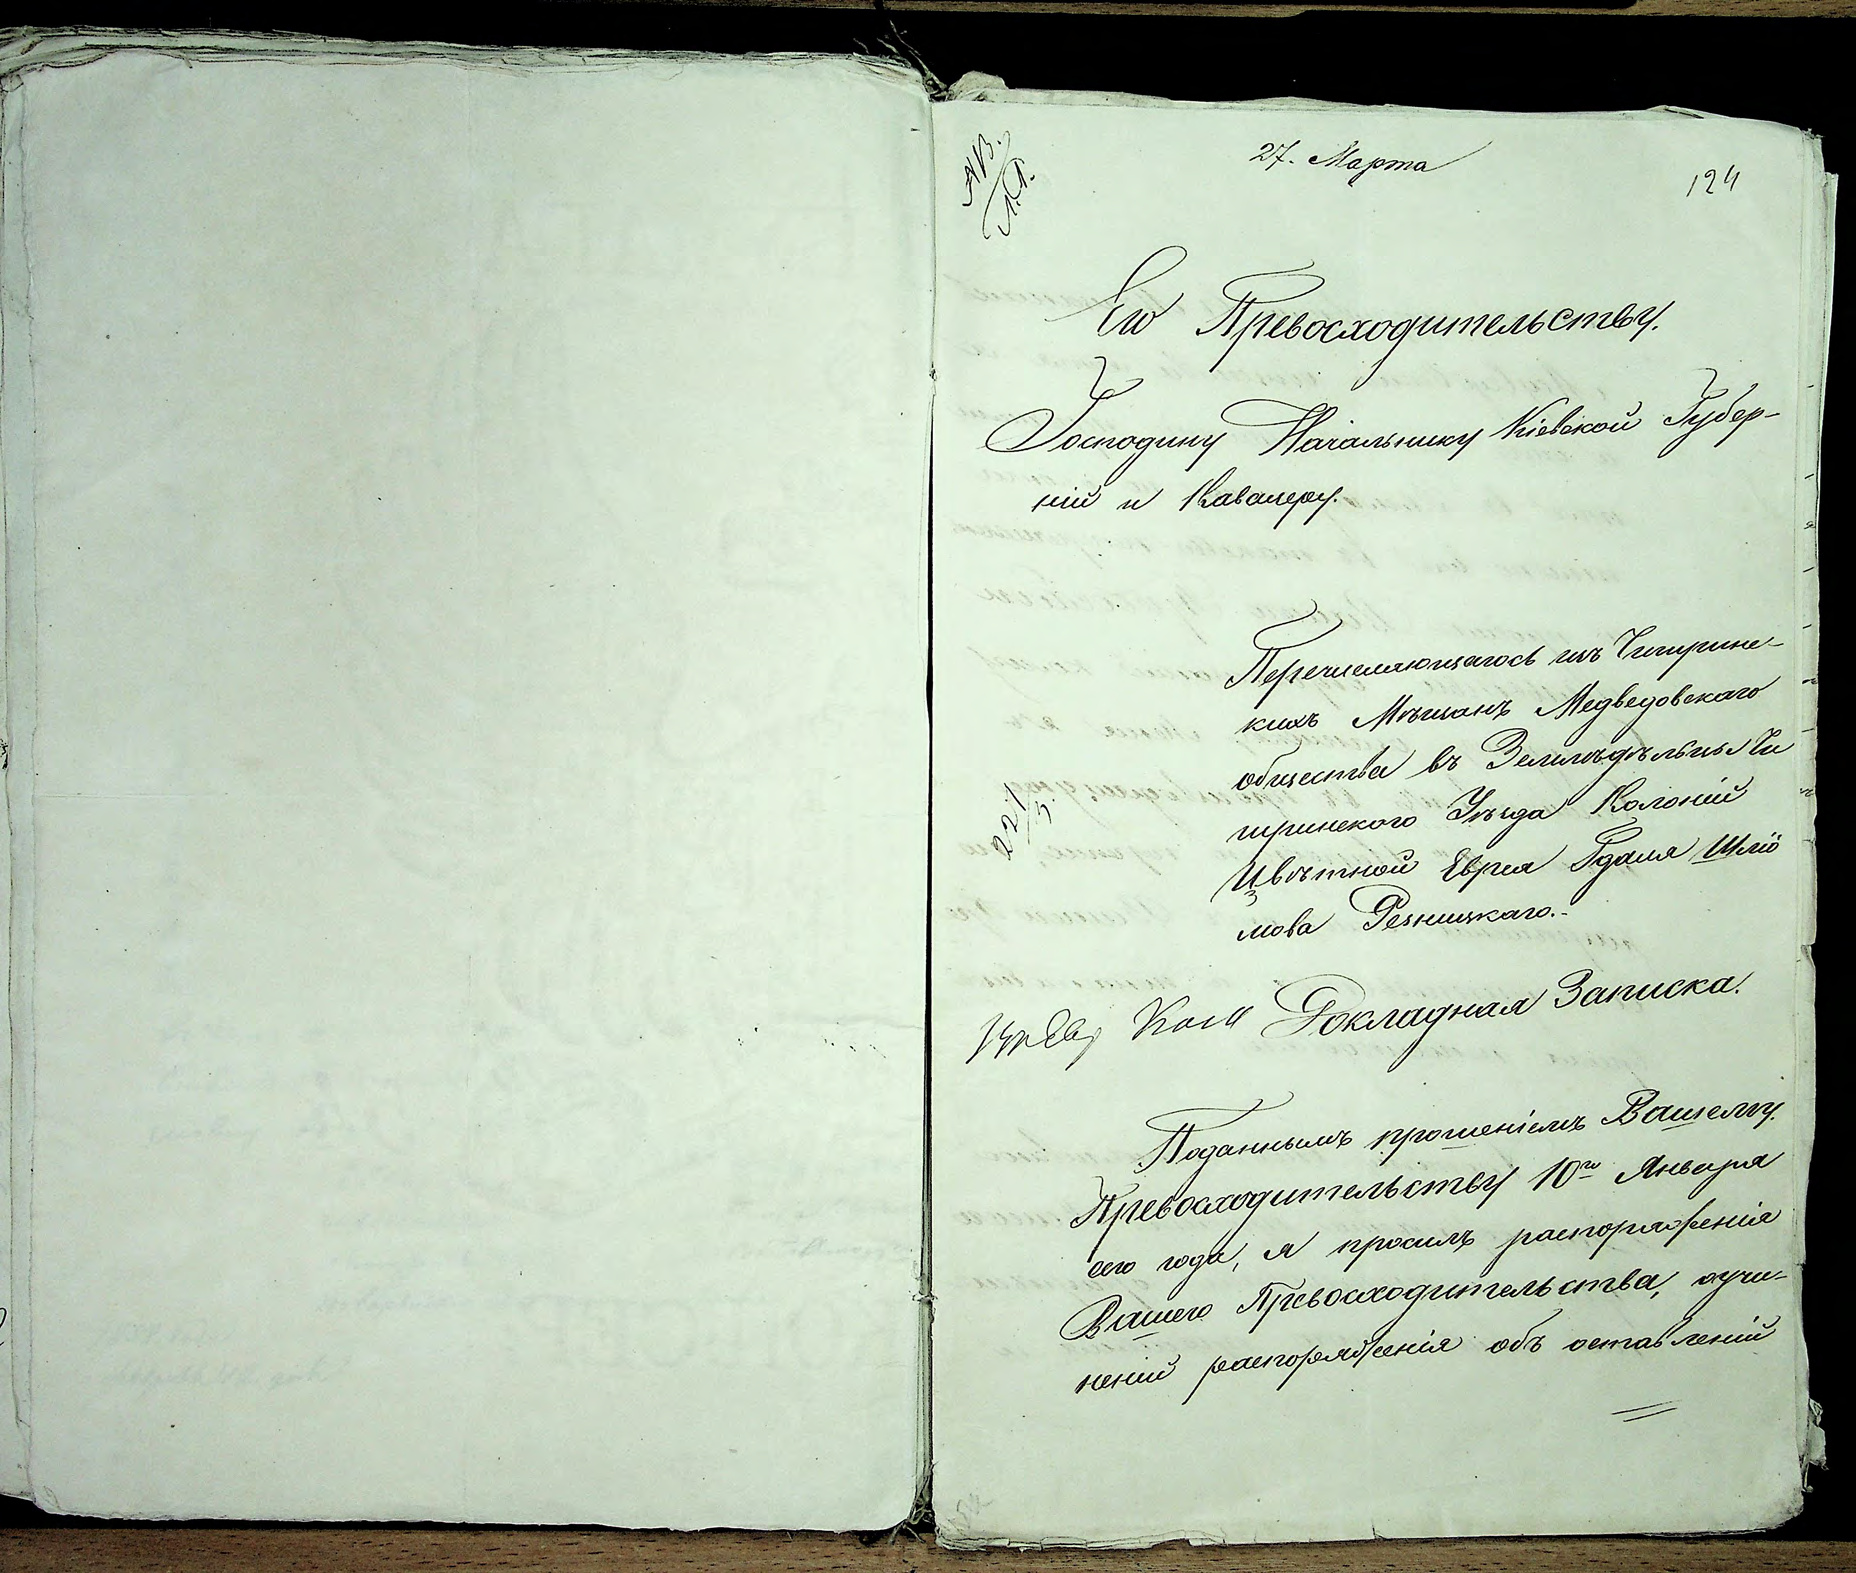 27. Марта
124
Его Превосходительству.
Господину Начальнику Кіевской Губер-
ніи и Кавалеру.
Перечисляющагося изъ Чигиринс-
кихъ Мѣщанъ Медведовскаго
общества въ Земледѣльцы Чи
гиринского Уѣзда Колоніи
Цвѣтной Еврея Гдаля Шлiо
мова Резницкаго.-
221
5
Докладная Записка.
Поданнымъ прошеніемъ Вашему
Превосходительству 10го Января
сего года, я просилъ распоряженія
Вашего Превосходительства, οучи-
неніи распоряженія объ оставленіи